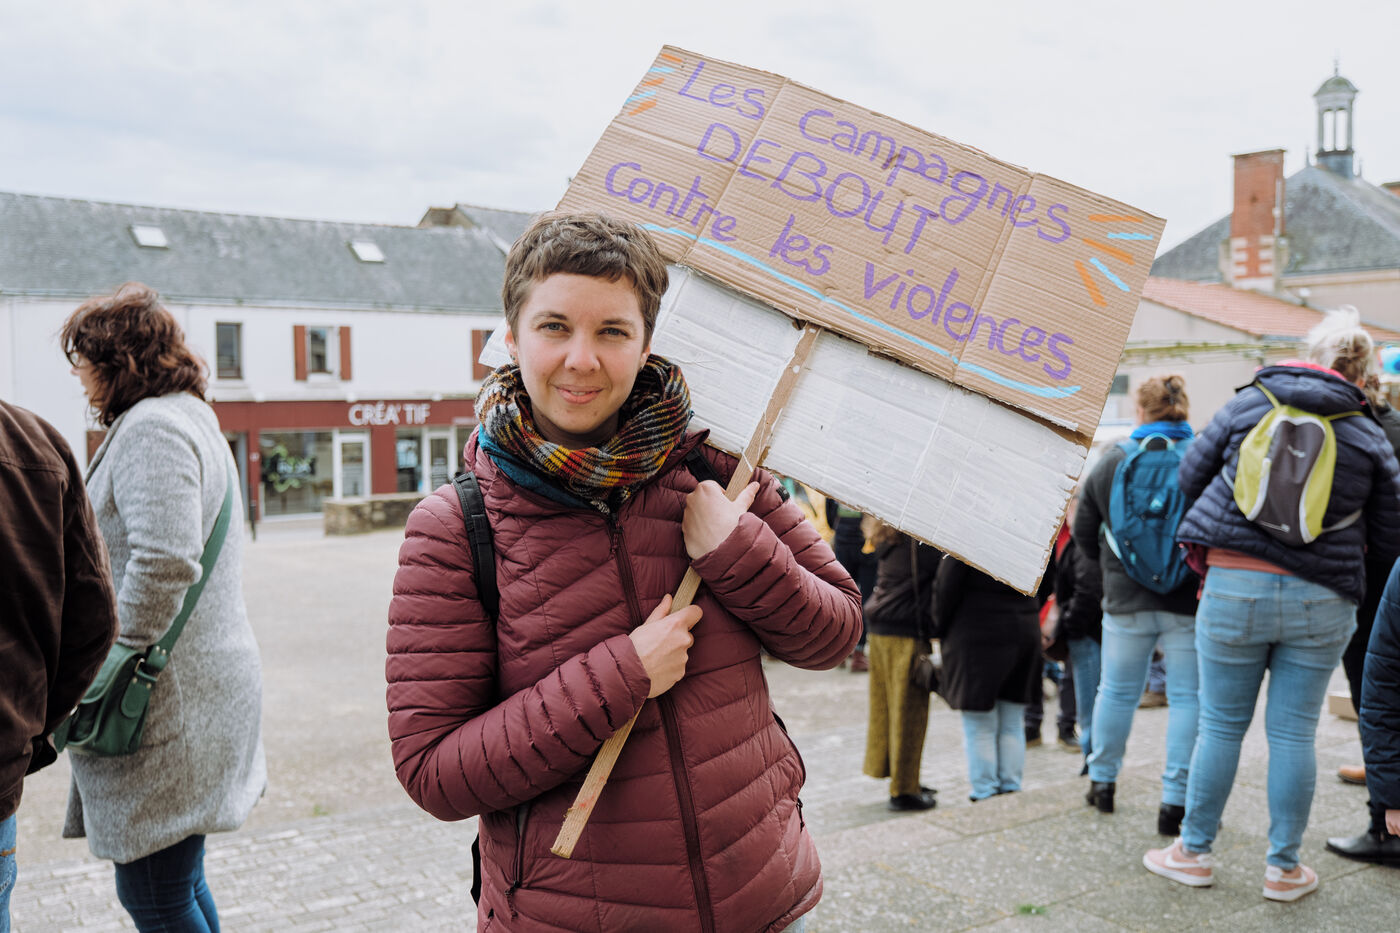 Les campagnes
DEBOUT
Contre les violences
CRÉA'TIF